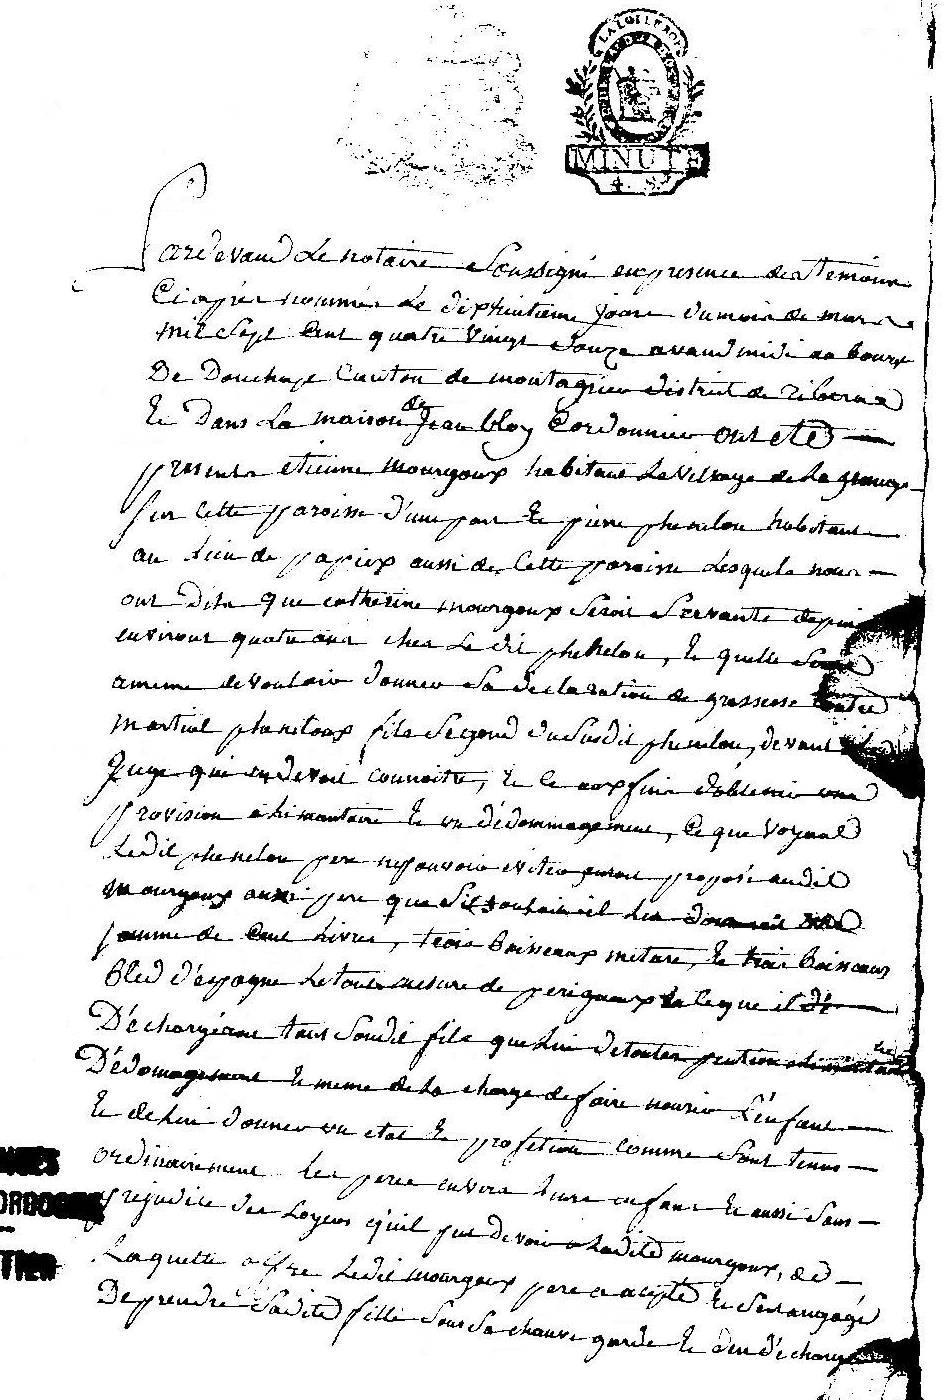 LA LOI LE ROI
MINUTE
4. S.
Pardevand Le notaire Soussigné en presence des temoins
Ci aprés nommés Le dixhuitieme jour du mois de mars
mil Sept Cent quatre vingt douze avand midi au bourg
De Douchapt Canton de montagrier district de riberac
Et Dans La maison de Jean bloy Cordonnier ont eté
presents etienne mourgoux habitant Le village de La grange
Sur Cette paroisse d'une part Et pierre phenelou habitant
au Lieu de papiox aussi de Cette paroisse Lesquels nous
ont Dits que catherine mourgoux Seroit Servante depuis
environt quatre ans ches Le dit phenelou, Et quelle
a meme de vouloir donner Sa declaration de grossesse contre
martial pheneloux fils Segond du Susdit phenelou, devant le
Juge qui en devoit connoitre, Et Ce aux fins d'obtenir une
provision alimantaire Et un dédommagement, Ce que voyand
Ledit phenelou pere ne pouvoir eviter auroit proposé audit
mourgoux aussi pere que S'il vouloit il Lui donneroit une
somme de Cent Livres, trois boisseaux meture, Et trois boisseaux
Bled d'espagne Le tout mesure de perigueux il
Déchargeroit tant Soudit fils que Lui de toutes pention alimantaire
Dédomagement Et meme de La charge de faire nourir L'enfant
Et de Lui donner un etat Et profetion comme Sont tenus
ordinairement Les peres envers Leurs enfans Et aussi Sans
prejudice des Loyers qu'il peut devoir a Ladite mourgoux,
Laquelle offre Ledit mourgoux pere a acepté Et Sest angagé
De prendre Sadite fille Sous Sa Sauve garde Et d'en décharger
ORDOGNE